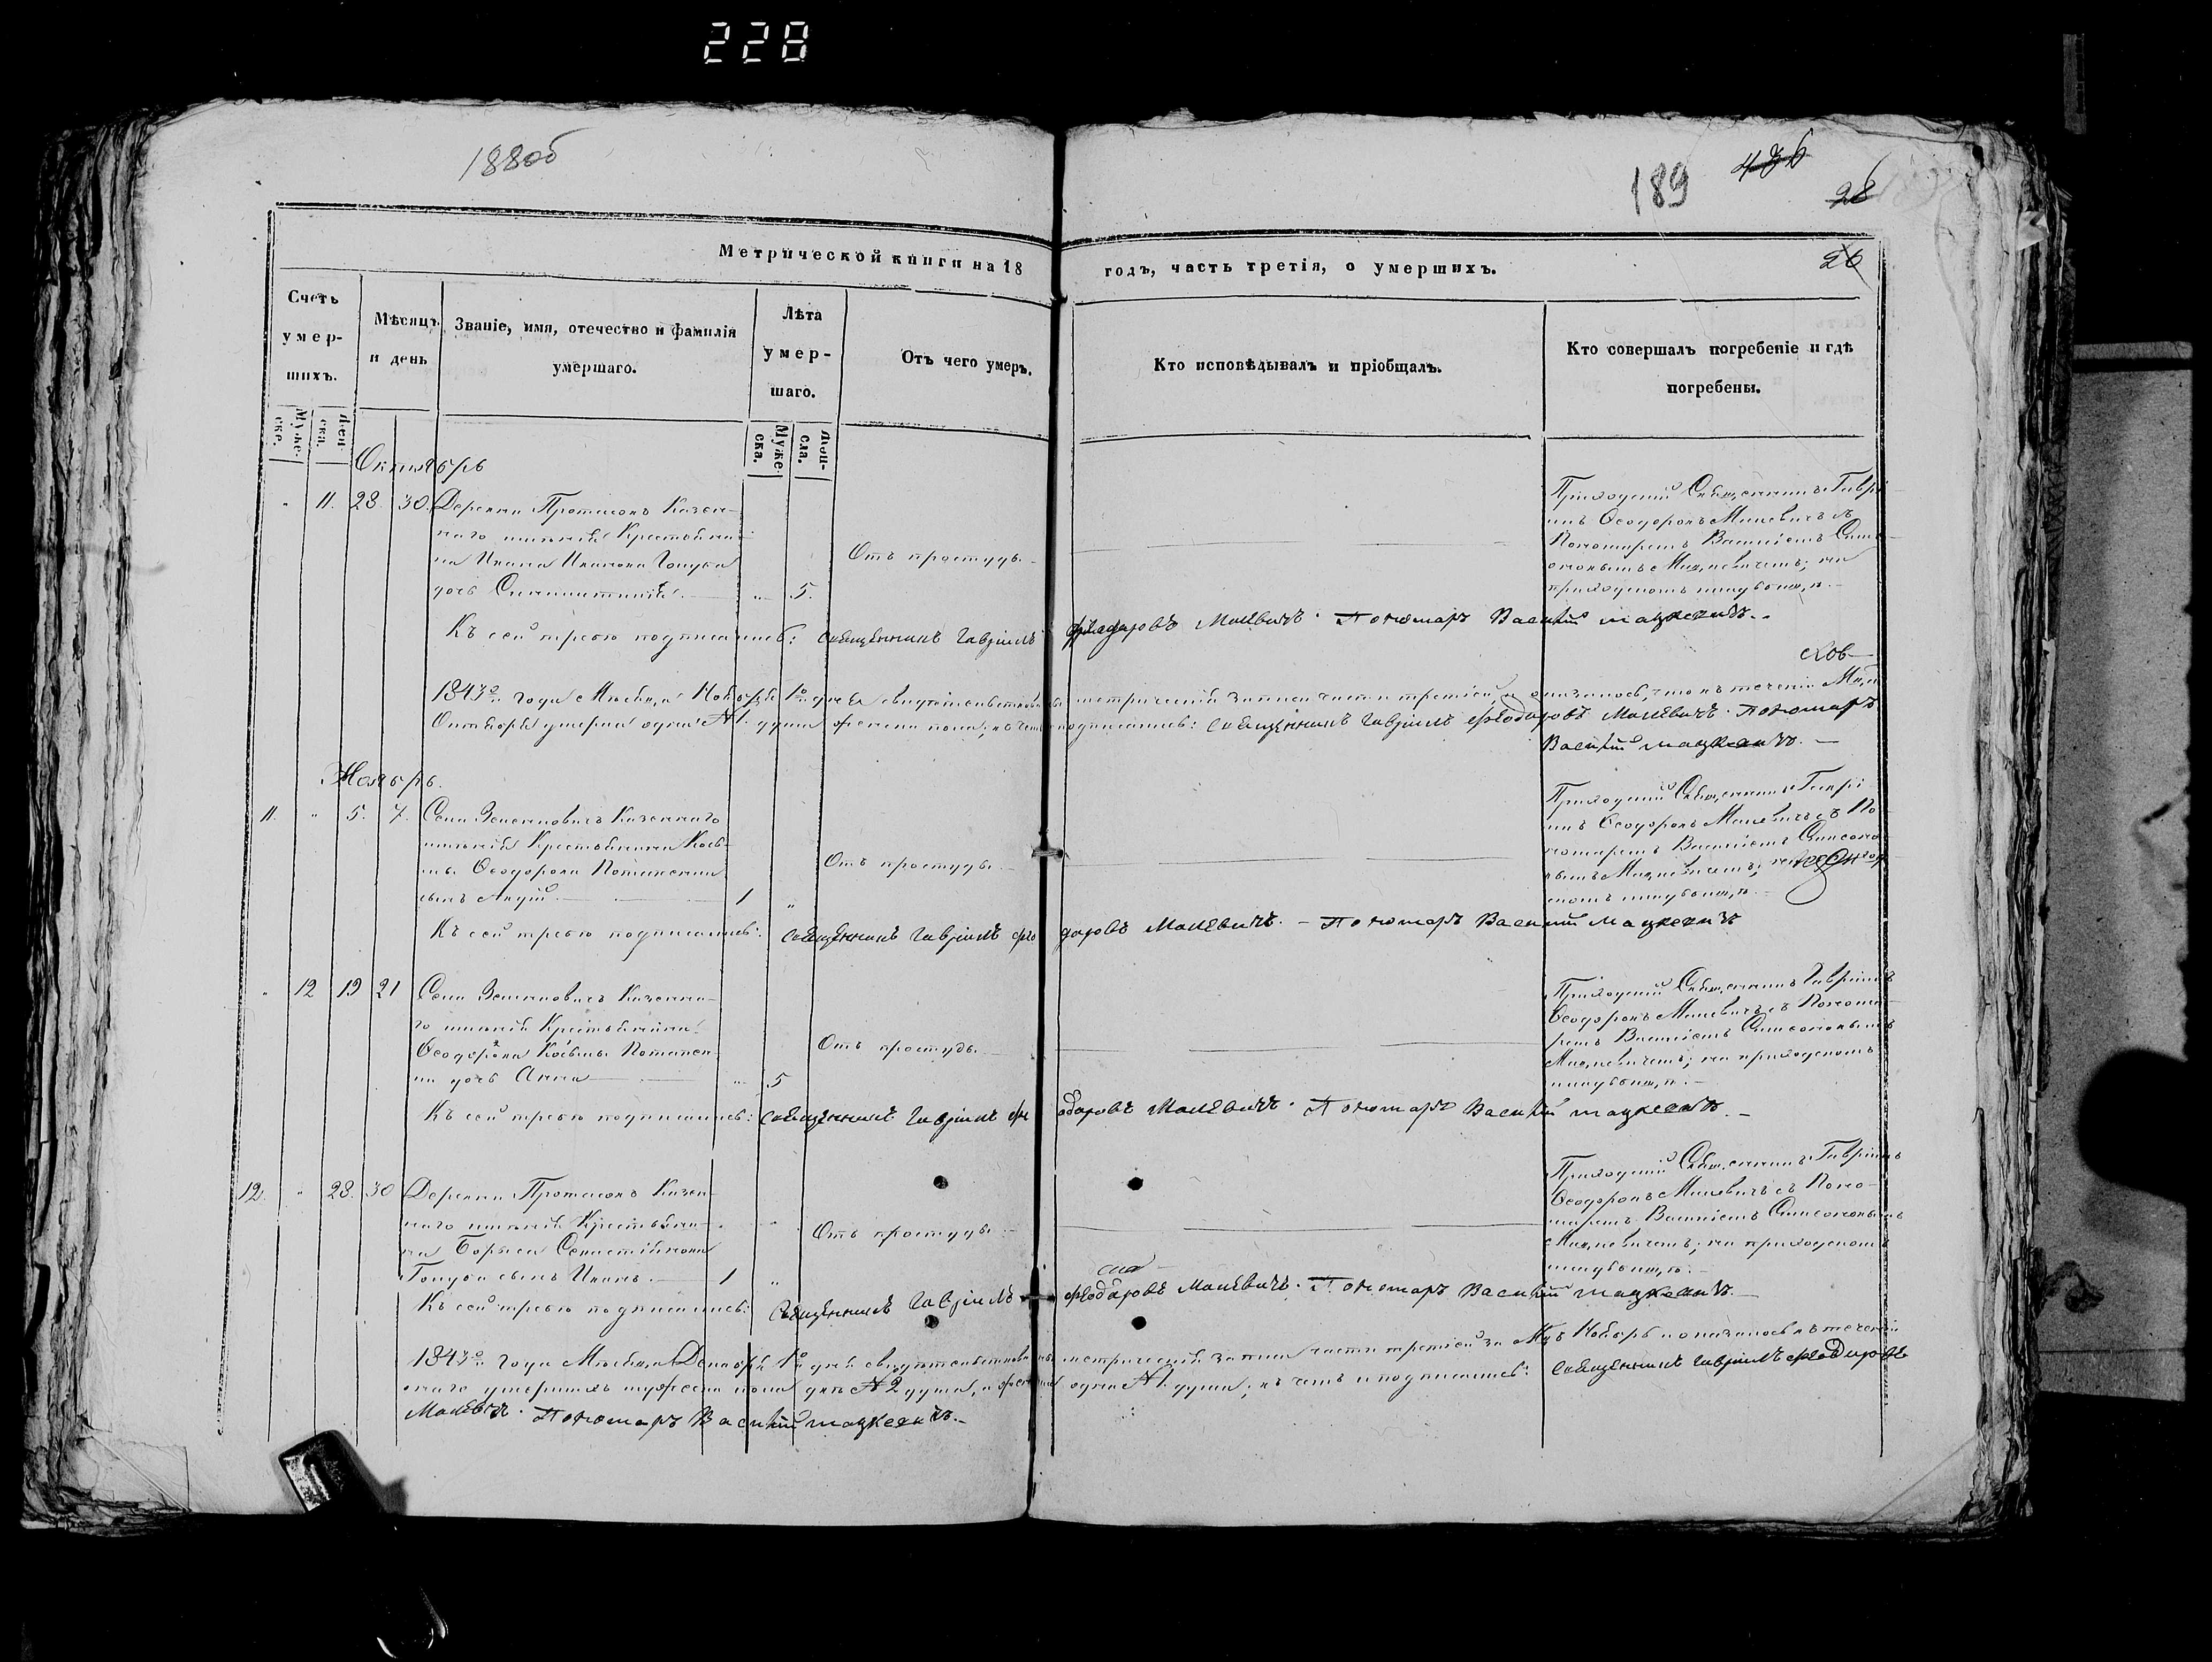 228
188об
189
436
28
26
Метрической книги на 18 годъ, часть третія, о умершихъ.
Счетъ умер-шихъ.
Мужеске.
Женски.
Мѣсяцъ и день
Званіе, имя, отечество и фамилія умершаго.
Лѣта умер-шаго.
Мужеска.
Женсла.
Отъ чего умеръ.
Кто исповѣдывалъ и пріобщалъ.
Кто совершалъ погребеніе и гдѣ погребены.
Октябрь
" 11. 28. 30. Деревни Протасовъ Казен-
наго имѣнія Крестьяни-
на Ивана Иванова Голуба
дочь
" 5.
Отъ простуды.
Приходскій Священникъ Гаврі-
илъ Ѳеодоровъ Малевичъ съ
Пономаремъ Василіемъ Симе-
оновымъ Мацкевичемъ; на
приходскомъ кладбищѣ.
Къ сей третью подписались: священникъ Гавріилъ Феодоровъ Малевичъ. Пономарь Василій Мацкевичъ.
1843го года Мѣсяца Ноября 1го дня свидѣтельствованы метрической записи части третіей, и оказалось, что въ теченіи
Октября умерла одна №1. душа женска пола; въ чемъ подписались: священникъ Гавріилъ Феодоровъ Малевичъ. Пономарь
Василій Мацкевичъ.
Ноябрь.
11. " 5. 7. Села Зеленковичъ Казеннаго
имѣнія Крестьянина Кось-
мы Ѳеодорова Потапенка
сынъ
1 "
Отъ простуды.
Приходскій Священникъ Гаврі-
илъ Ѳеодоровъ Малевичъ съ По-
номаремъ Василіемъ Симеоно-
вымъ Мацкевичемъ; на приход-
скомъ кладбищѣ.
Къ сей третью подписались: священникъ Гавріилъ Феодоровъ Малевичъ. Пономарь Василій Мацкевичъ
" 12 19 21 Села Зеленковичъ Казенна-
го имѣнія Крестьянина
Ѳеодорова Косьмы Потапен-
ка дочь Анна
" 5
Отъ простуды.
Приходскій Священникъ Гавріилъ
Ѳеодоровъ Малевичъ съ Понома-
ремъ Василіемъ Симеоновымъ
Мацкевичемъ; на приходскомъ
кладбищѣ.
Къ сей третью подписались: священникъ Гавріилъ Феодоровъ Малевичъ. Пономарь Василій Мацкевичъ.
12. " 28. 30 Деревни Протасовъ Казен-
наго имѣнія Крестьяни-
на Бориса Севастіянова
Голуба сынъ Иванъ.
1 "
Отъ простуды.
Приходскій Священникъ Гавріилъ
Ѳеодоровъ Малевичъ съ Поно-
маремъ Василіемъ Симеоновымъ
Мацкевичемъ; на приходскомъ
кладбищѣ.
Къ сей третью подписались: Священникъ Гавріилъ Феодоровъ Малевичъ. Пономарь Василій Мацкевичъ.
1843го года Мѣсяца Декабря 1го дня свидѣтельствованы метрической записи части третіей за Мцъ Ноябрь и оказалось въ теченіи
онаго умершихъ мужеска пола двѣ №2 души, а женска одна №1. душа; въ чемъ и подписались: священникъ Гавріилъ Феодоровъ
Малевичъ. Пономарь Василій Мацкевичъ.